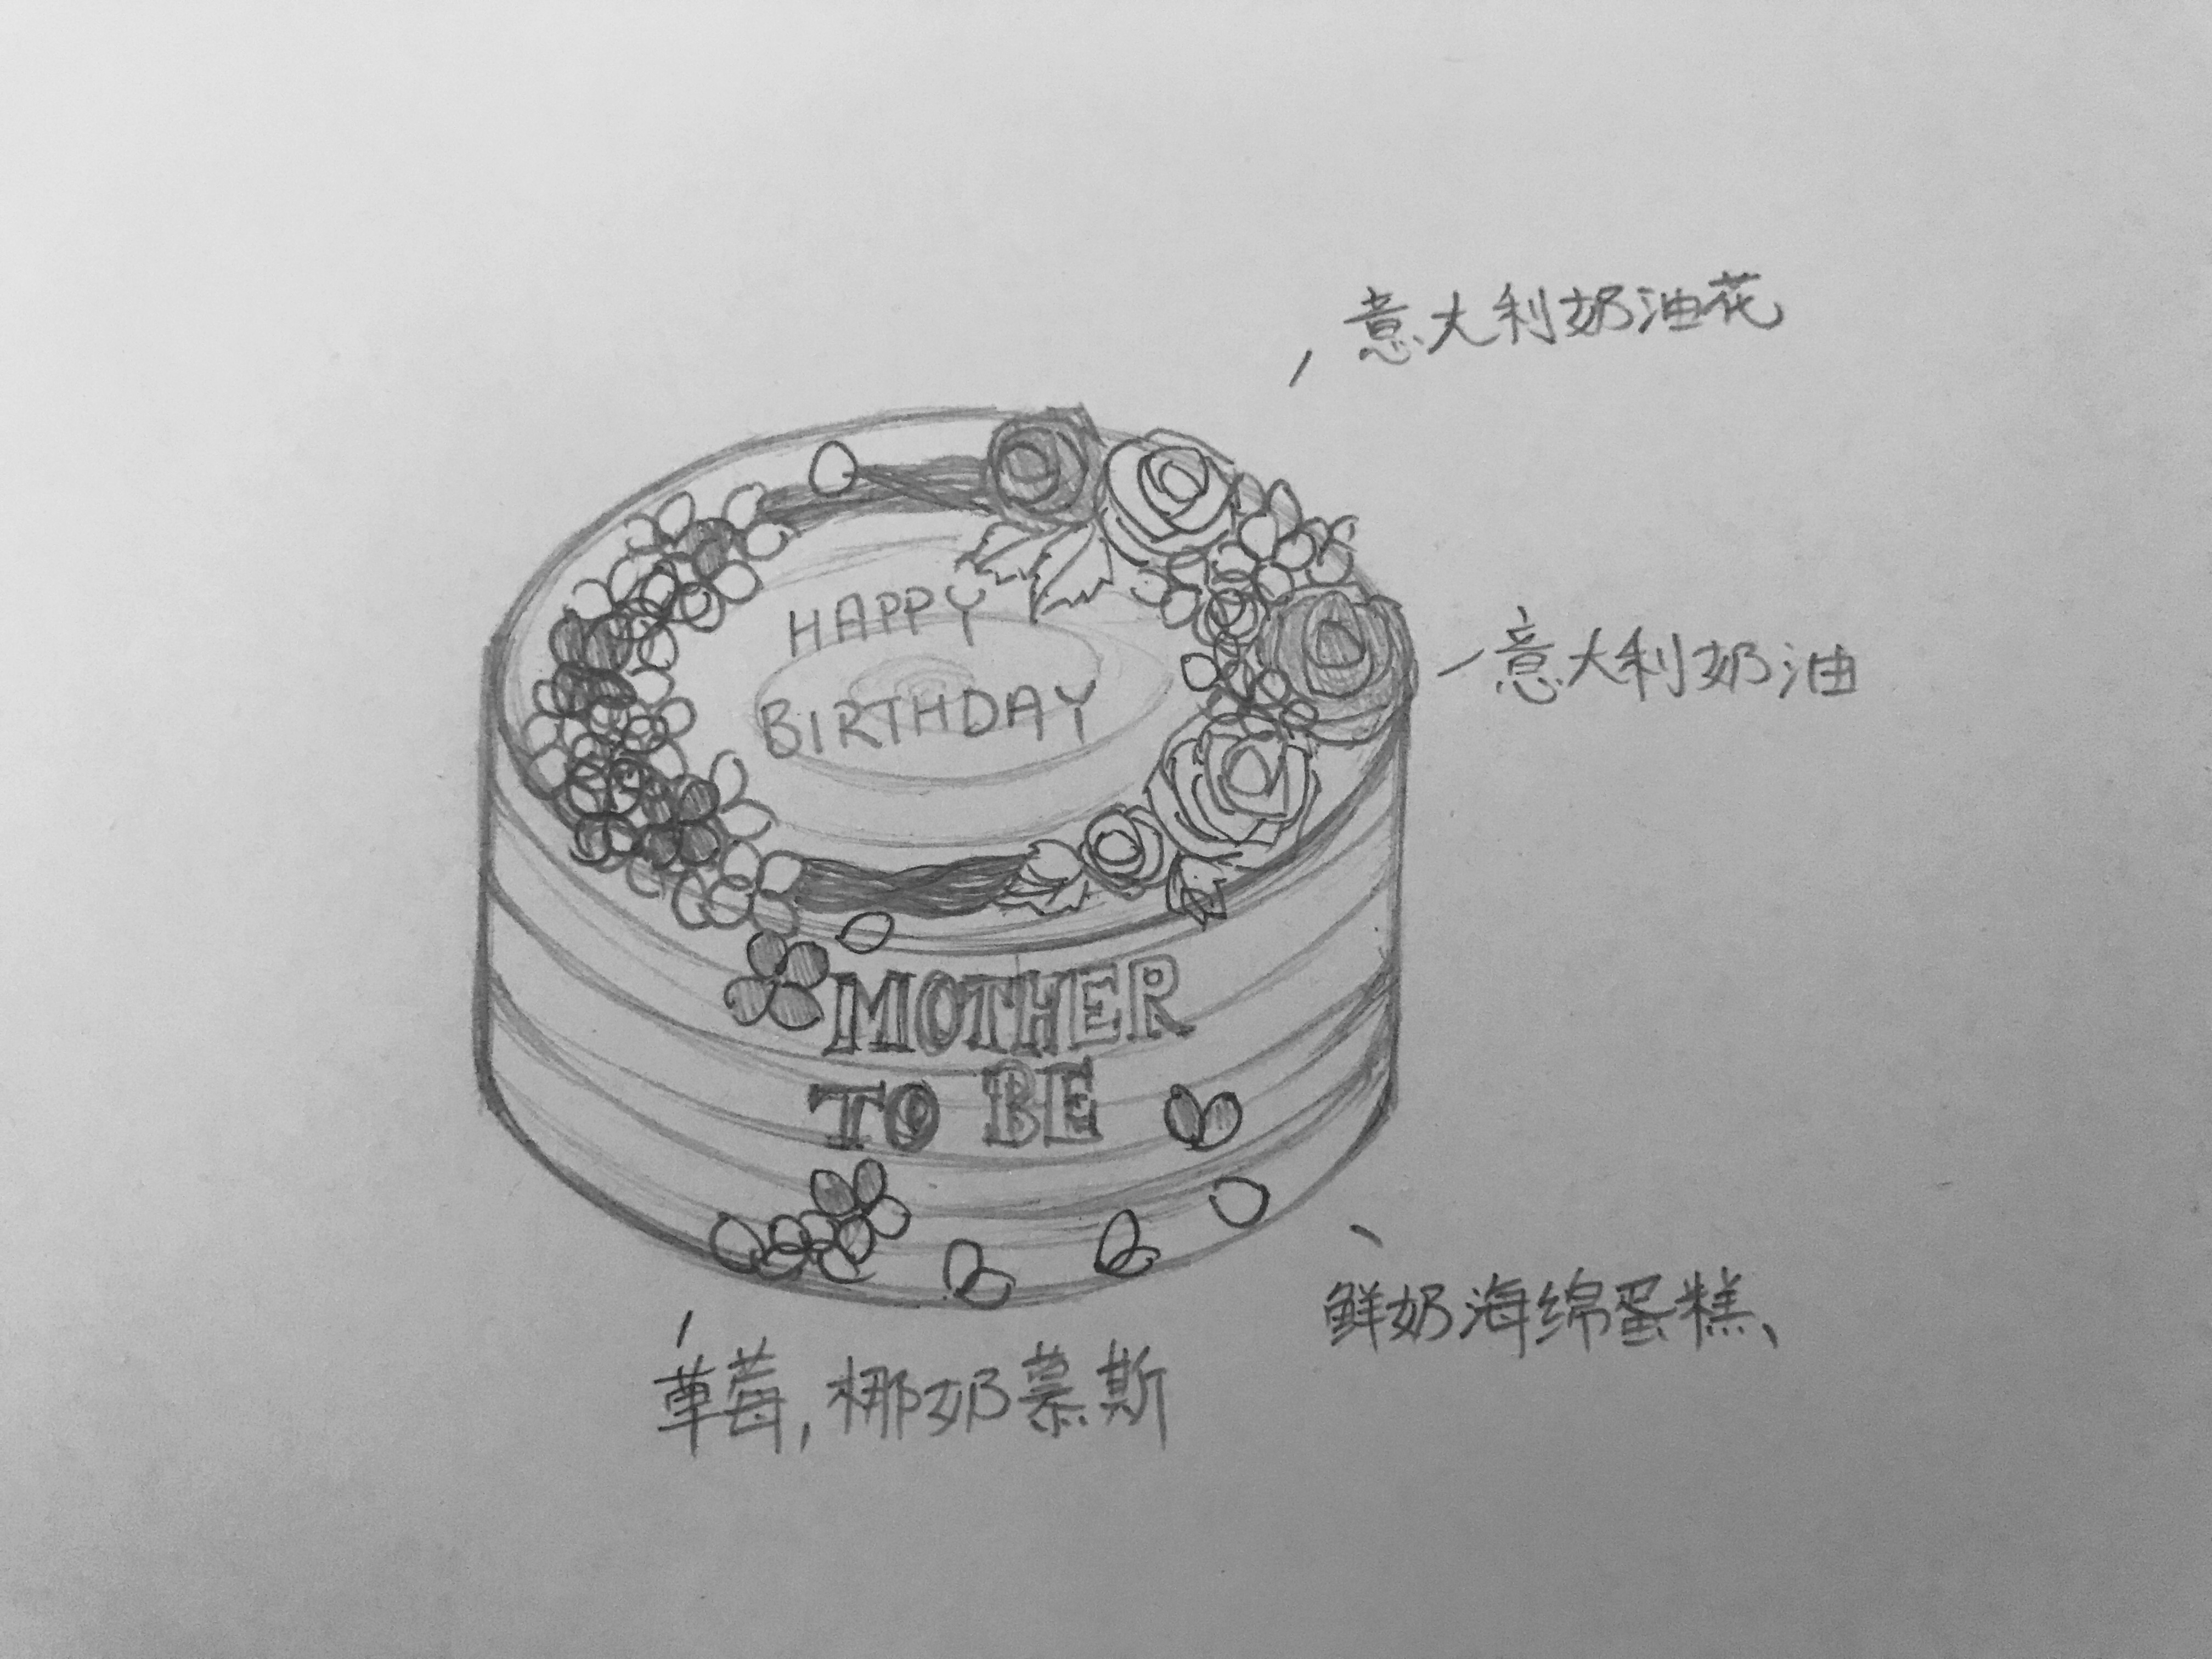 意大利奶油花
HAPPY
BIRTHDAY
意大利奶油
MOTHER
TO BE
鲜奶海绵蛋糕、
草莓,椰奶慕斯